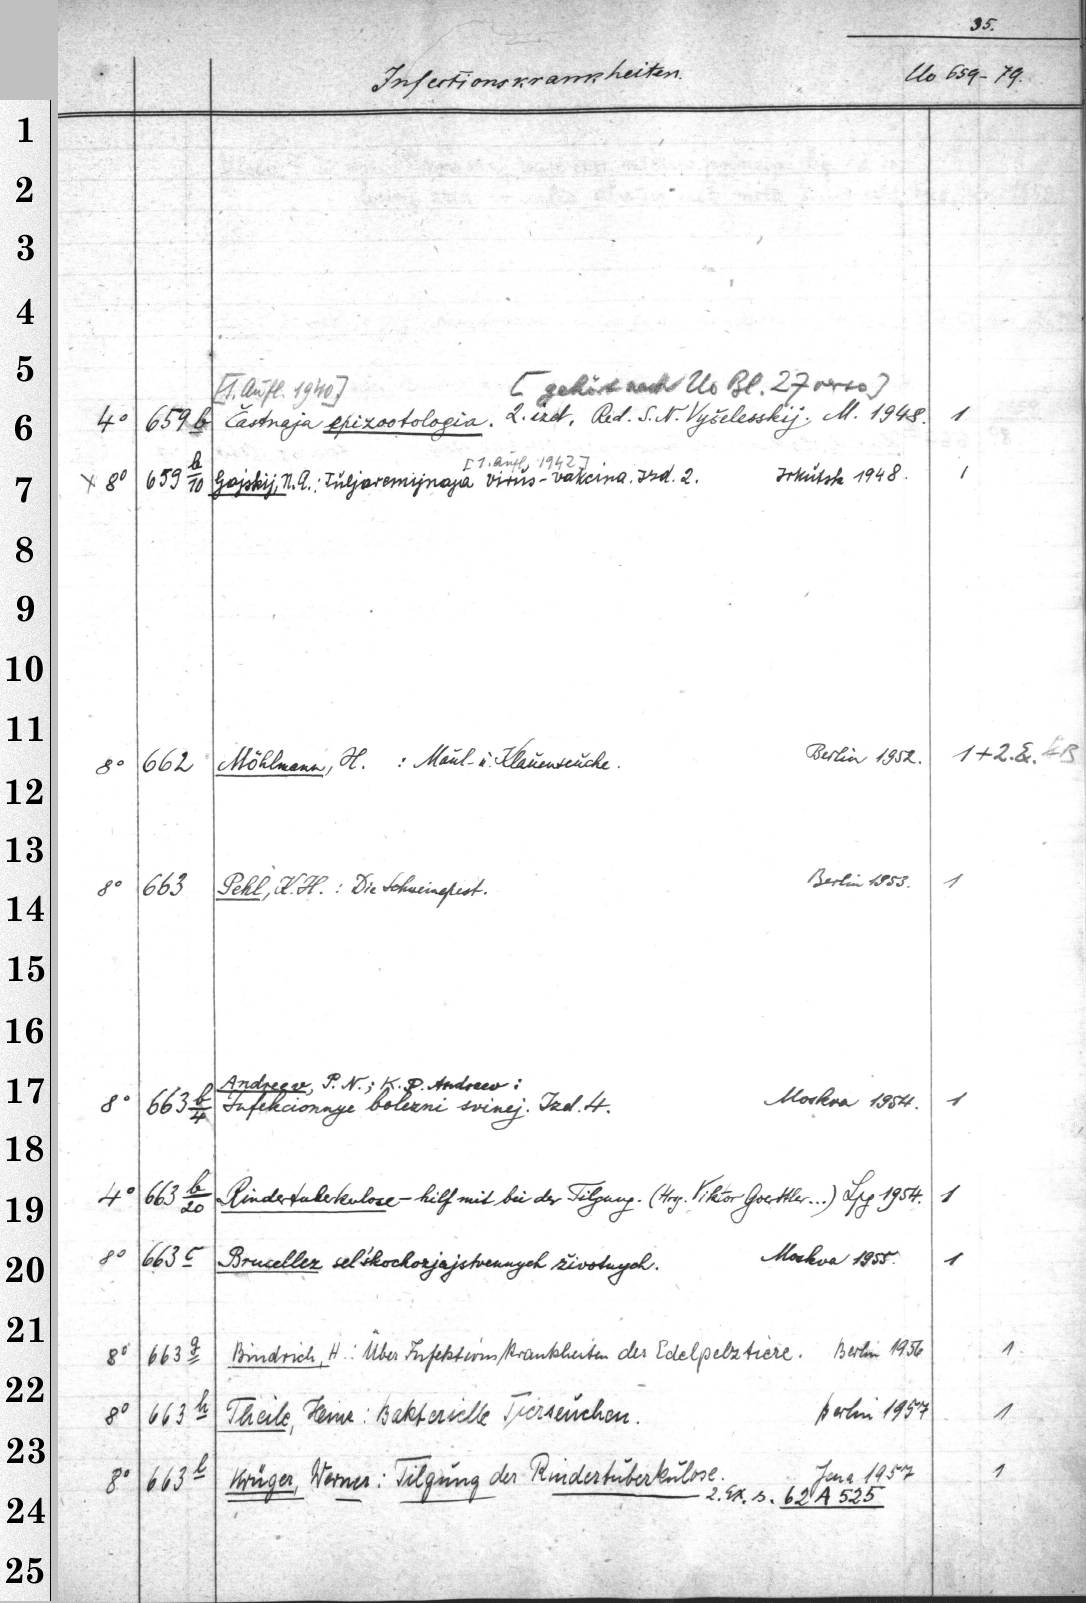 35.
Infectionskrankheiten. Uo 659-79.
1
2
3
4
5
[1. Aufl. 1940] [gehört nach Uo Bl. 27 verso]
6 4° 659 b Častnaja epizootologia. 2. izd. Red. S. N. Vyšelesskij. M. 1948. 1
[1. Aufl. 1942]
7 x 8° 659 b/10 Gajskij, N. A.: Tuljaremijnaja virus-vakcina. Izd. 2. Irkutsk 1948. 1
8
9
10
11
8° 662 Möhlmann, H. : Maul- u. Klauenseuche. Berlin 1952. 1 + 2. Ex.
12
13
8° 663 Pehl, K. H. : Die Schweinepest. Berlin 1953. 1
14
15
16
17 Andreev, P. N.; K. P. Andreev:
8° 663 b/4 Infekcionnye bolezni svinej. Izd. 4. Moskva 1954. 1
18
19 4° 663 b/20 Rindertuberkulose - hilf mit bei der Tilgung. (Hrg. Viktor Goerttler...) Lpg 1954. 1
20 8° 663 c Brucellez sel'skochozjajstvennych životnych. Moskva 1955. 1
21
8° 663 g Bindrich, H.: Über Infektionskrankheiten der Edelpelztiere. Berlin 1956 1
22
8° 663 h Theile, Heinz: Bakterielle Tierseuchen. Berlin 1957 1
23
8° 663 l Krüger, Werner: Tilgung der Rindertuberkulose. Jena 1957 1
24 2. Ex. s. 62 A 525
25